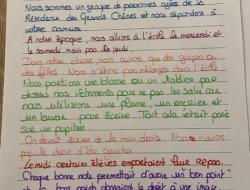 Nous sommes un groupe de personnes agées de la
Résidence des Grands Chênes et nous répondons à
votre courrier.
A notre époque, nous allions à l'école le mercredi et
le samedi mais pas le jeudi.
Dans notre classe nous avions que des garçons ou
des filles. Nous n'étions pas mélangés dans l'école.
Nous portions une blouse ou un tablier pour
nos vêtements pour ne pas les salir
nous utilisions une plume, un encrier et
un buvard pour écrire. Tout cela était posé
sur un pupitre.
On devait écrire de la main droite. Nous n'avions
pas le droit d'être gaucher.
Le midi certains élèves emportaient leur repas.
Chaque bonne note permettait d'avoir un "bon point"
bons points donnaient le droit à une image